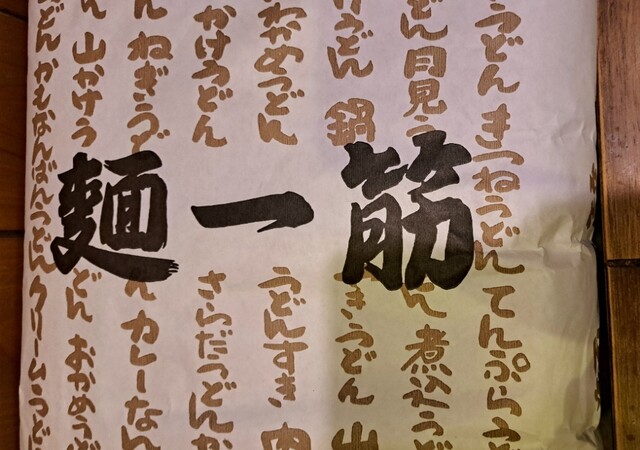 麺一筋
うどん きつねうどん てんぷらう
どん 月見う
ん 煮込う
けうどん 鍋
きうどん 山
わかめうどん
うどんすき 肉
かけうどん
さらだうどん か
ん ねぎうど
ん カレーなん
ん 山かけう
どん おかめうど
どん かもなんばんうどん クリームうどん